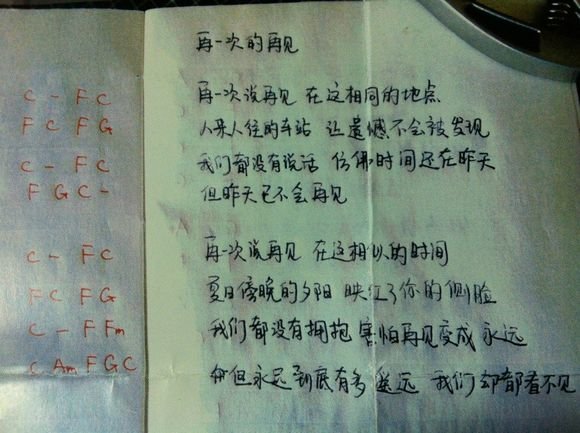 再一次的再见
C - F C
再一次说再见 在这相同的地点
F C F G
人来人往的车站 让遗憾不会被发现
C - F C
我们都没有说话 仿佛时间还在昨天
F G C -
但昨天已不会再见
C - F C
再一次说再见 在这相似的时间
F C F G
夏日傍晚的夕阳 映红了你的侧脸
C - F Fm
我们都没有拥抱 害怕再见变成 永远
C Am F G C
但永远到底有多遥远 我们却都看不见